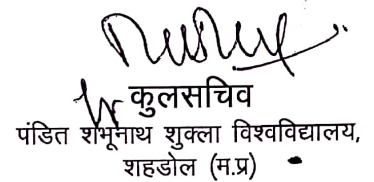 कुलसचिव
पंडित शंभूनाथ शुक्ला विश्वविद्यालय,
शहडोल (म.प्र)